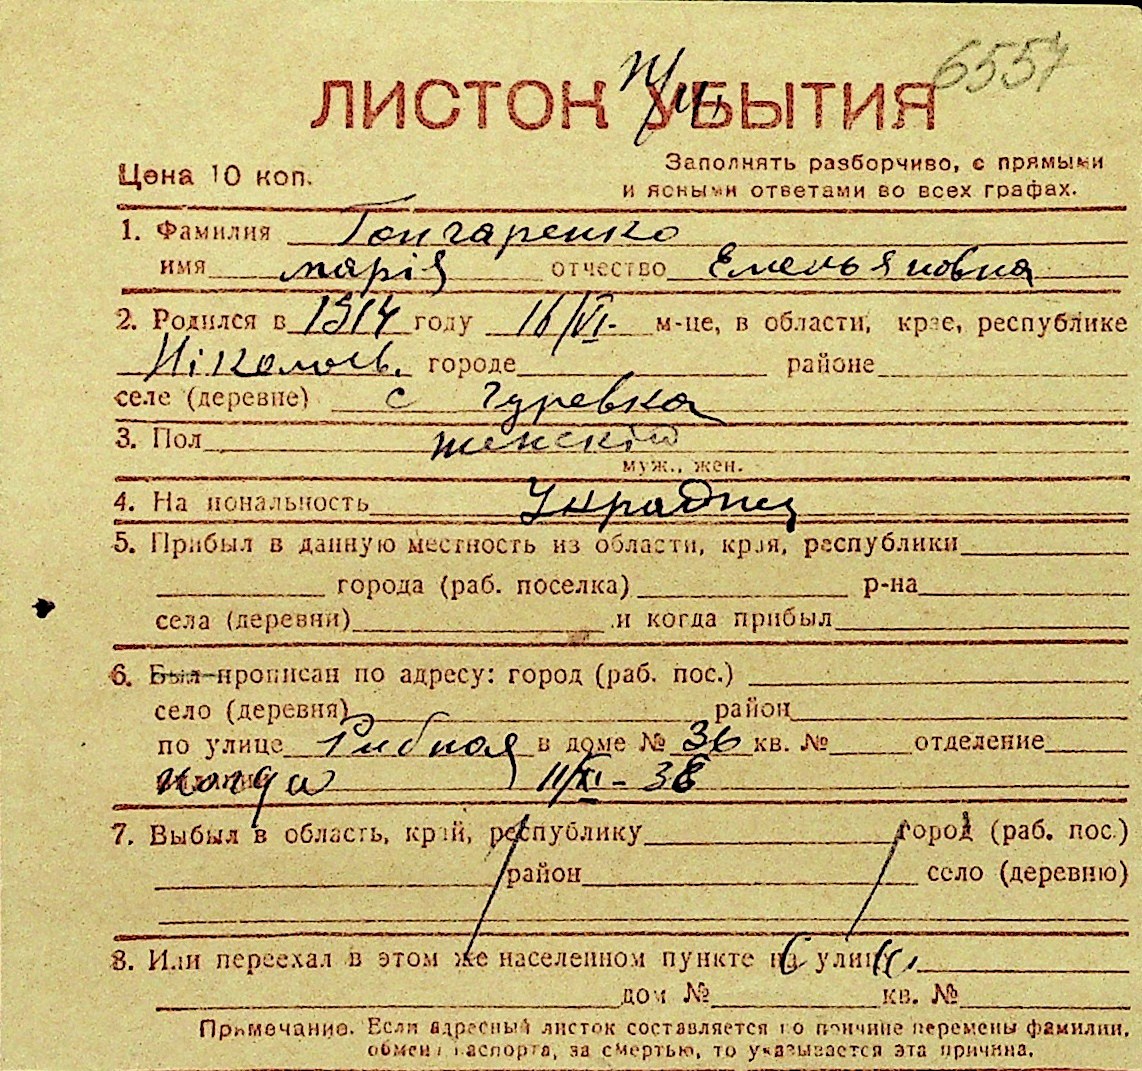 6554
ЛИСТОК УБЫТИЯ
Цена 10 коп.
Заполнять разборчиво, с прямыми
и ясными ответами во всех графах.
1. Фамилия Гончаренко
имя марія отчество Емельяновна
2. Родился в 1914 году 16/VI- м-це, в области, крае, республике
Ніколаев. городе районе
селе (деревне) с Гуревка
3. Пол женскій
муж., жен.
4. Национальность
5. Прибыл в данную местность из области, края, республики
города (раб. поселка) р-на
села (деревни) и когда прибыл
6. Был прописан по адресу: город (раб. пос.)
село (деревня) район
по улице Рибная в доме № 36 кв. № отделение
когда 11/XI-38
7. Выбыл в область, край, республику город (раб. пос.)
район село (деревню)
8. Или переехал в этом же населенном пункте на улицу
дом № кв. №
Примечание. Если адресный листок составляется по причине перемены фамилии,
обмена паспорта, за смертью, то указывается эта причина.